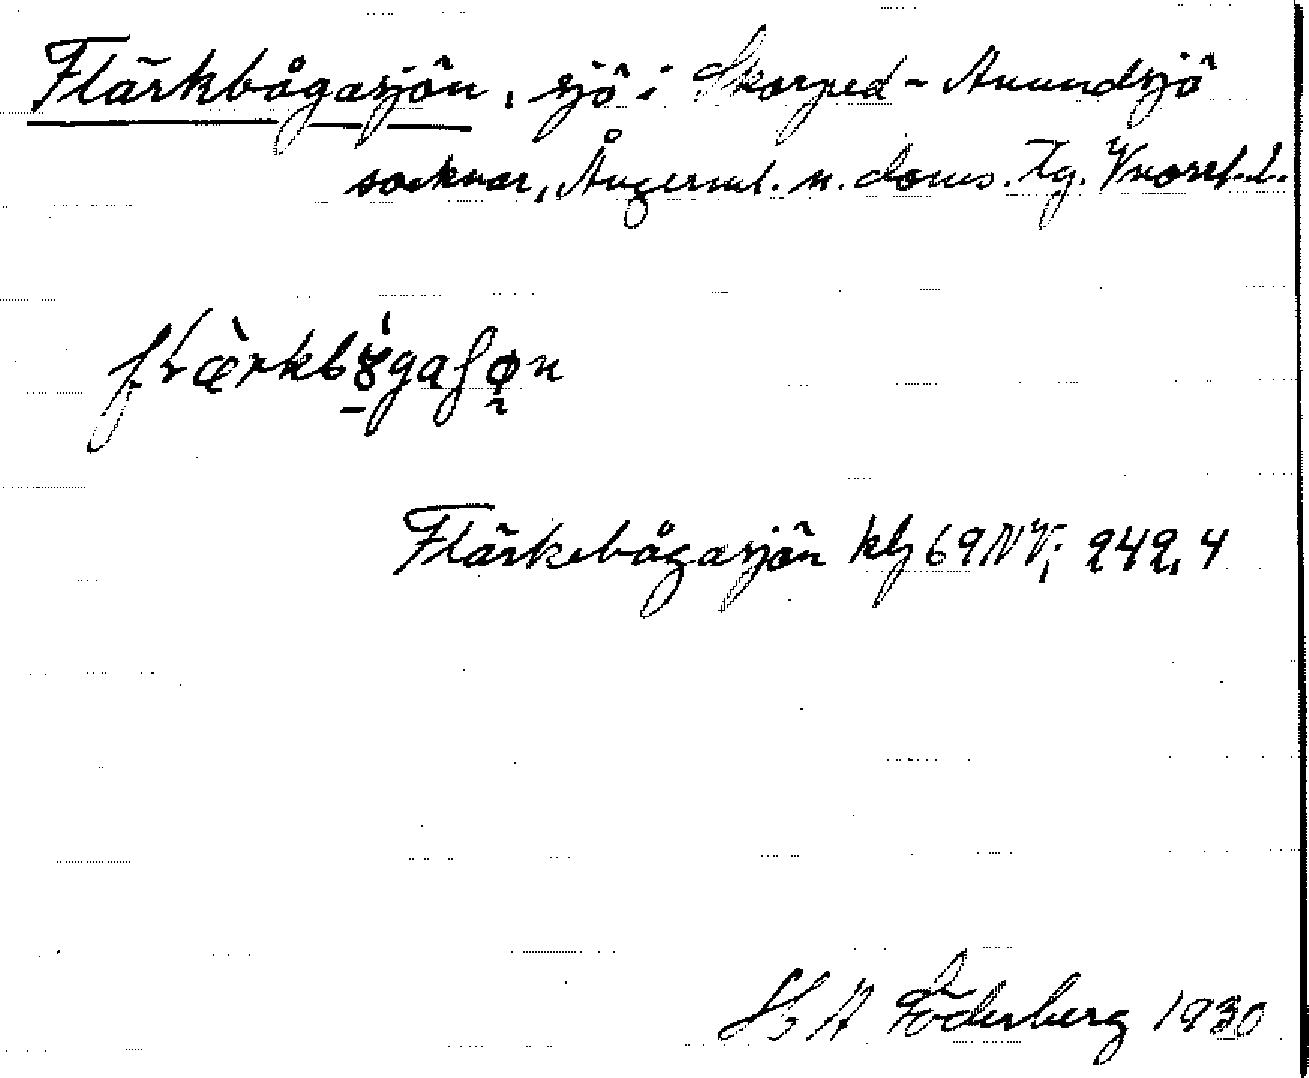 Flärkbågasjön, sjö i Skorped - Anundsjö
socknar, Ångerml. n. doms. Tg. Vnorrl. l.
Flärkebågasjön kbl 69 NV; 242,4
H A Söderberg 1930